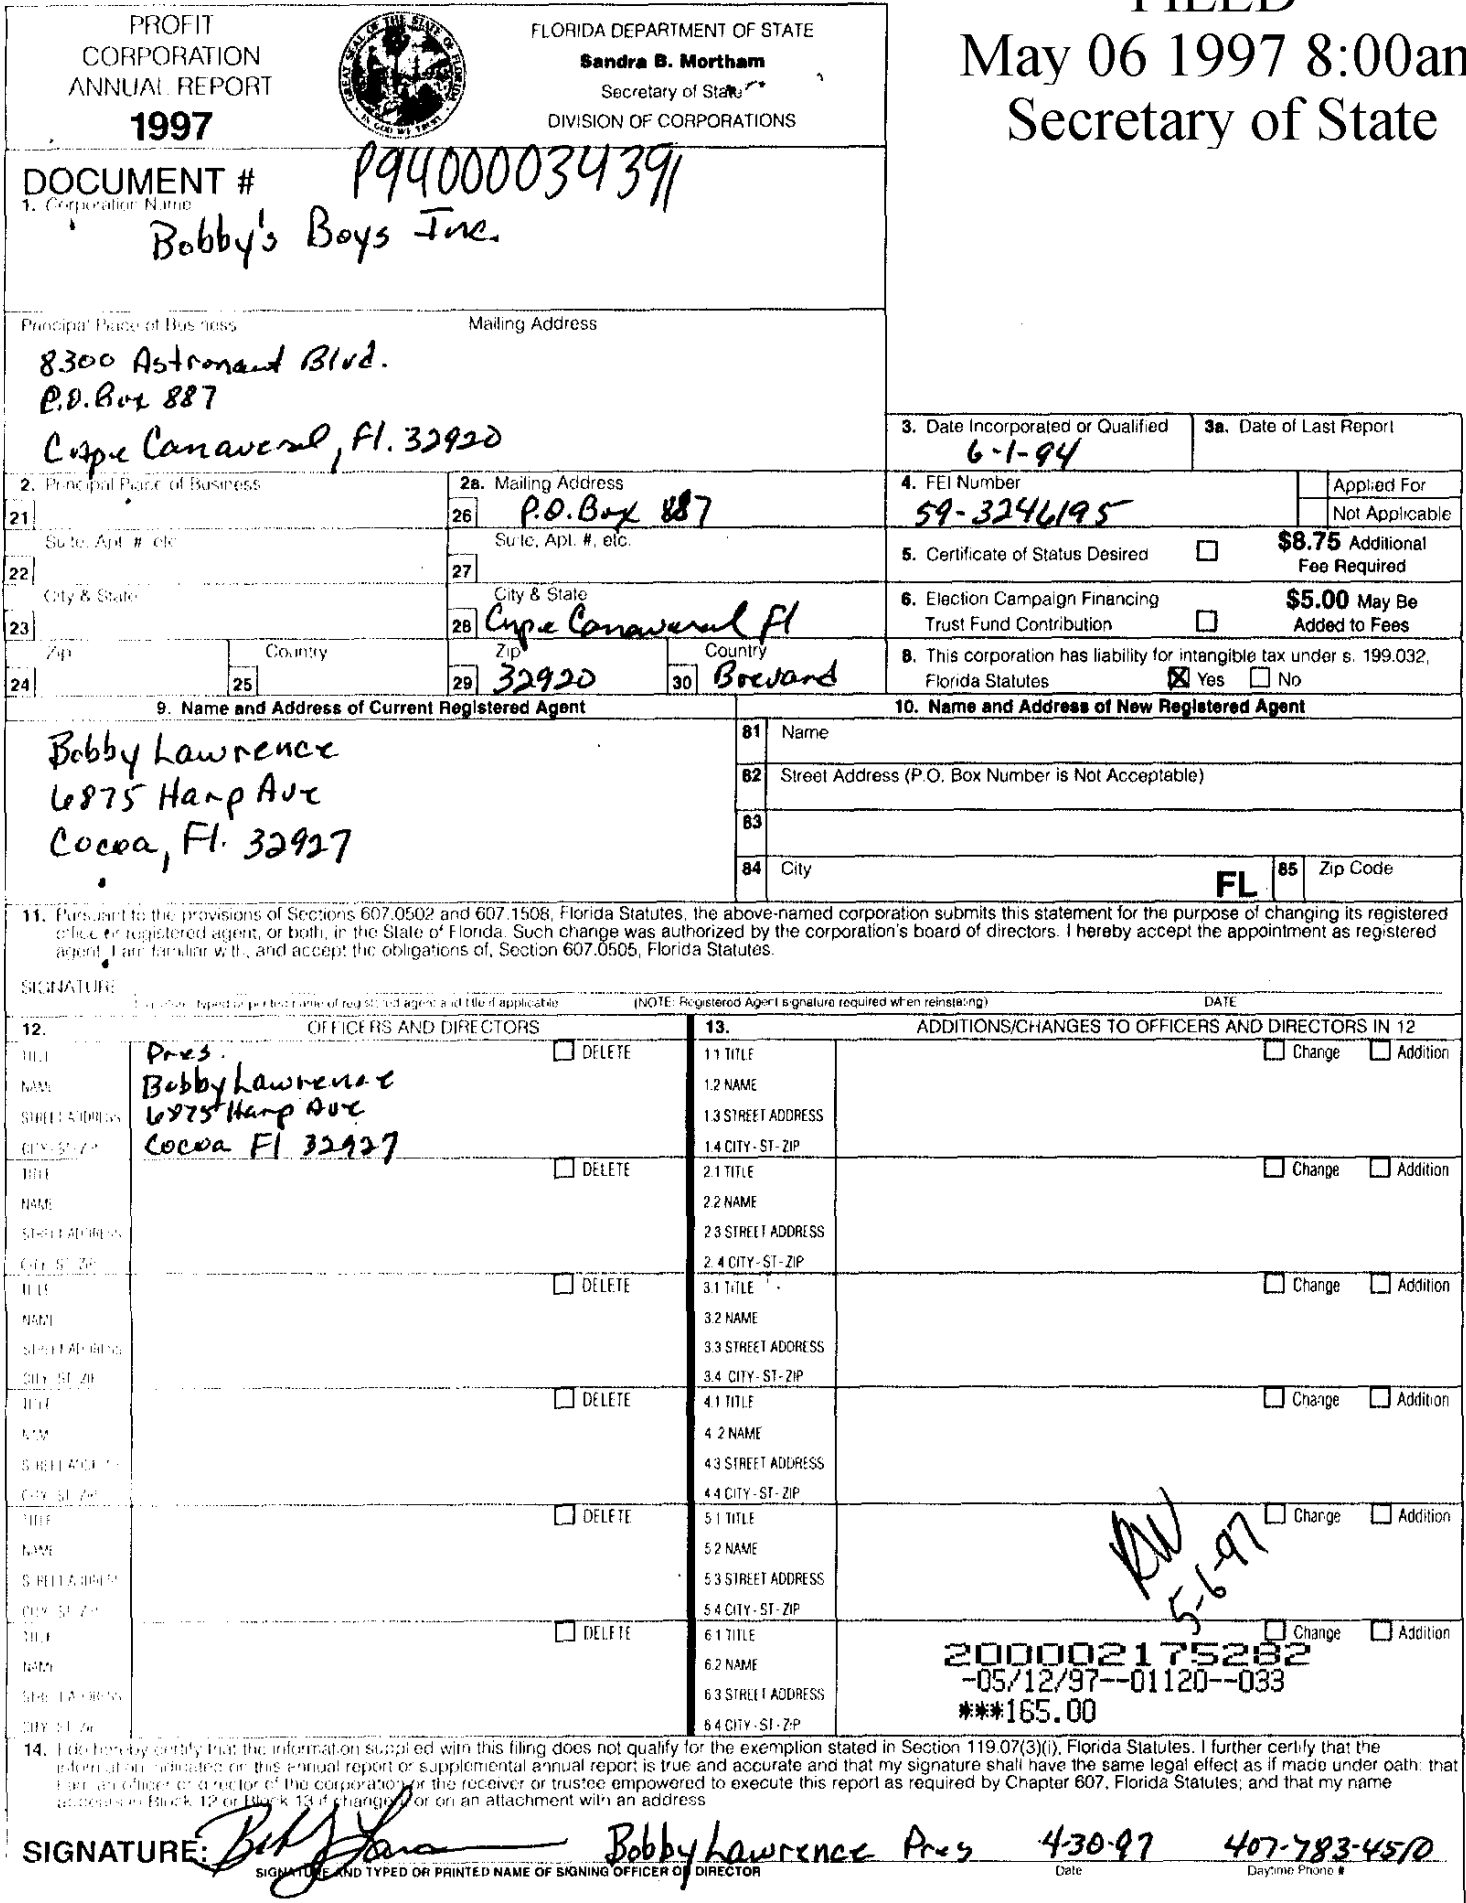 PROFIT
CORPORATION
ANNUAL REPORT
1997
FLORIDA DEPARTMENT OF STATE
Sandra B. Mortham
Secretary of State
DIVISION OF CORPORATIONS
FILED
May 06 1997 8:00am
Secretary of State
DOCUMENT # P94000034391
1. Corporation Name
Bobby's Boys Inc.
Principal Place of Business Mailing Address
8300 Astronaut Blvd.
P.O. Box 887
Cape Canaveral, Fl. 32920
3. Date Incorporated or Qualified
6-1-94
3a. Date of Last Report
2. Principal Place of Business
21
Suite, Apt. #, etc.
22
City & State
23
Zip Country
24 25
2a. Mailing Address
26 P.O. Box 887
Suite, Apt. #, etc.
27
City & State
28 Cape Canaveral Fl
Zip Country
29 32920 30 Brevard
4. FEI Number
59-3246195
Applied For
Not Applicable
5. Certificate of Status Desired $8.75 Additional
Fee Required
6. Election Campaign Financing $5.00 May Be
Trust Fund Contribution Added to Fees
8. This corporation has liability for intangible tax under s. 199.032,
Florida Statutes X Yes No
9. Name and Address of Current Registered Agent
Bobby Lawrence
6875 Harp Ave
Cocoa, Fl. 32927
10. Name and Address of New Registered Agent
81 Name
82 Street Address (P.O. Box Number is Not Acceptable)
83
84 City FL 85 Zip Code
11. Pursuant to the provisions of Sections 607.0502 and 607.1508, Florida Statutes, the above-named corporation submits this statement for the purpose of changing its registered
office or registered agent, or both, in the State of Florida. Such change was authorized by the corporation's board of directors. I hereby accept the appointment as registered
agent. I am familiar with, and accept the obligations of, Section 607.0505, Florida Statutes.
SIGNATURE
Signature, typed or printed name of registered agent and title if applicable (NOTE: Registered Agent signature required when reinstating) DATE
12. OFFICERS AND DIRECTORS
TITLE Pres. DELETE
NAME Bobby Lawrence
STREET ADDRESS 6875 Harp Ave
CITY-ST-ZIP Cocoa Fl 32927
TITLE DELETE
NAME
STREET ADDRESS
CITY-ST-ZIP
TITLE DELETE
NAME
STREET ADDRESS
CITY-ST-ZIP
TITLE DELETE
NAME
STREET ADDRESS
CITY-ST-ZIP
TITLE DELETE
NAME
STREET ADDRESS
CITY-ST-ZIP
TITLE DELETE
NAME
STREET ADDRESS
CITY-ST-ZIP
13. ADDITIONS/CHANGES TO OFFICERS AND DIRECTORS IN 12
1.1 TITLE Change Addition
1.2 NAME
1.3 STREET ADDRESS
1.4 CITY-ST-ZIP
2.1 TITLE Change Addition
2.2 NAME
2.3 STREET ADDRESS
2.4 CITY-ST-ZIP
3.1 TITLE Change Addition
3.2 NAME
3.3 STREET ADDRESS
3.4 CITY-ST-ZIP
4.1 TITLE Change Addition
4.2 NAME
4.3 STREET ADDRESS
4.4 CITY-ST-ZIP
5.1 TITLE Change Addition
5.2 NAME
5.3 STREET ADDRESS
5.4 CITY-ST-ZIP
5-6-97
6.1 TITLE Change Addition
6.2 NAME
6.3 STREET ADDRESS
6.4 CITY-ST-ZIP
200002175282
-05/12/97--01120--033
***165.00
14. I do hereby certify that the information supplied with this filing does not qualify for the exemption stated in Section 119.07(3)(i), Florida Statutes. I further certify that the
information indicated on this annual report or supplemental annual report is true and accurate and that my signature shall have the same legal effect as if made under oath; that
I am an officer or director of the corporation or the receiver or trustee empowered to execute this report as required by Chapter 607, Florida Statutes; and that my name
appears in Block 12 or Block 13 if changed, or on an attachment with an address
SIGNATURE: Bobby Lawrence Pres 4-30-97 407-783-4510
SIGNATURE AND TYPED OR PRINTED NAME OF SIGNING OFFICER OR DIRECTOR Date Daytime Phone #